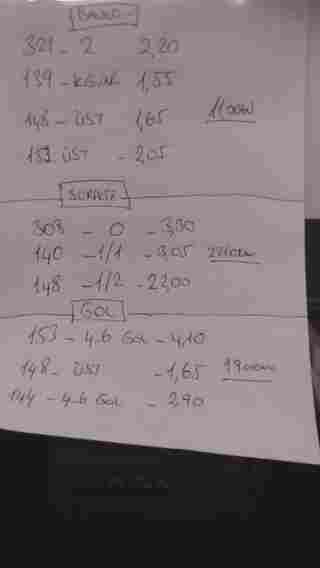 BANKO
321 - 2 2,20
139 - KGVAR 1,55
148 - ÜST 1,65
153 ÜST - 2,05
SÜRPRİZ
308 - 0 - 3,30
140 - 1/1 - 3,05
148 - 1/2 - 22,00
GOL
153 - 4-6 GOL - 4,10
148 - ÜST - 1,65
144 - 4-6 GOL - 2,90